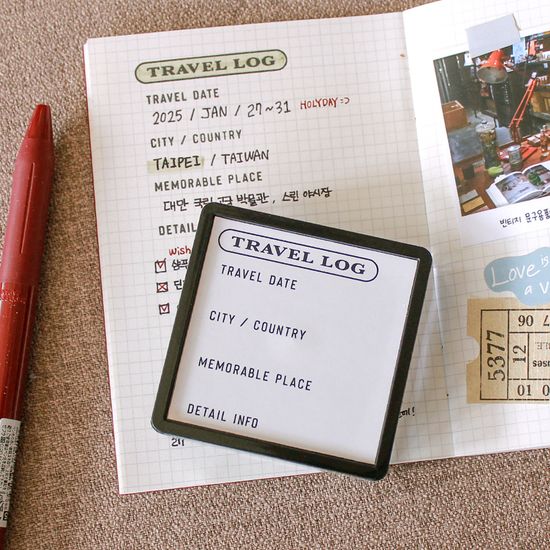 TRAVEL LOG
TRAVEL DATE
2025 / JAN / 27~31 HOLYDAY:)
CITY / COUNTRY
TAIPEI / TAIWAN
MEMORABLE PLACE
대만 국립 고궁 박물관, 스린 야시장
DETAIL
Wish
TRAVEL LOG
TRAVEL DATE
CITY / COUNTRY
MEMORABLE PLACE
DETAIL INFO
빈티지 문구용품
Love is
a
5377
12
06
90
01